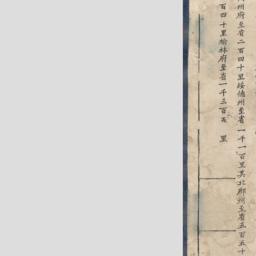 州府至省二百四十里綏德州至省一千一百里其北鄜州至省五百五十
百四十里榆林府至省一千三百五 里